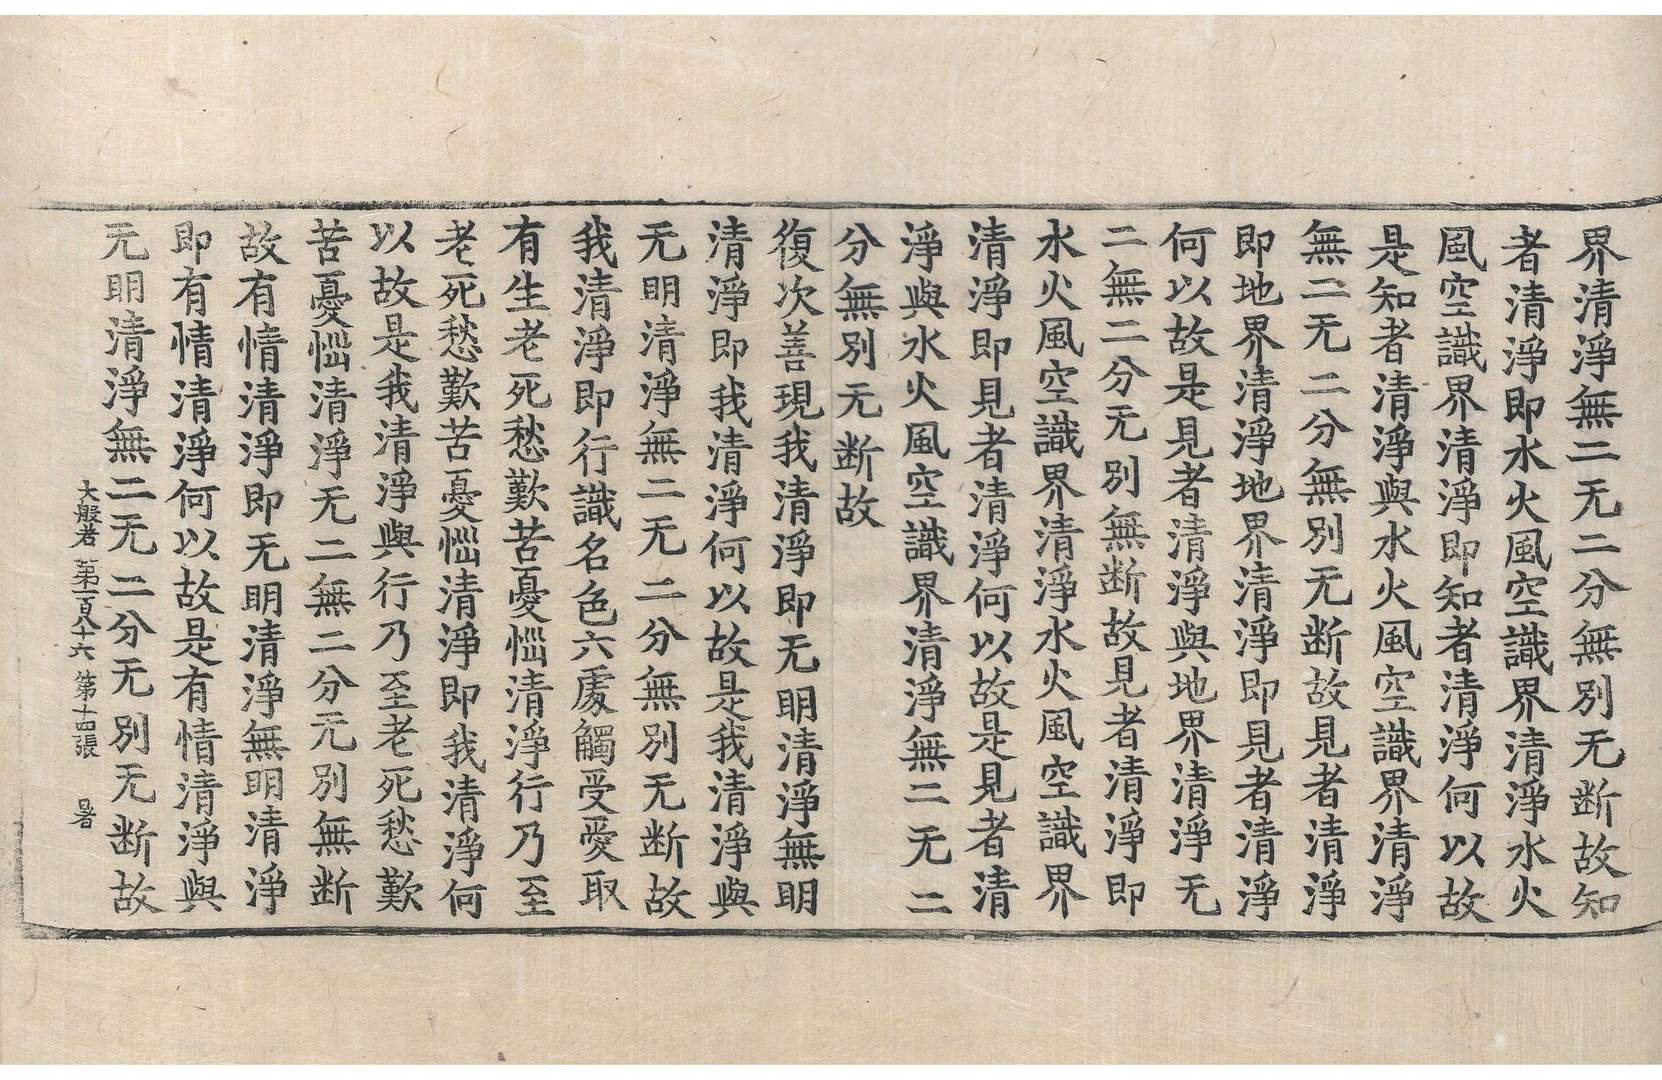 界清淨無二无二分無別无断故知
者清淨即水火風空識界清淨水火
風空識界清淨即知者清淨何以故
是知者清淨與水火風空識界清淨
無二无二分無別无断故見者清淨
即地界清淨地界清淨即見者清淨
何以故是見者清淨與地界清淨无
二無二分无別無断故見者清淨即
水火風空識界清淨水火風空識界
清淨即見者清淨何以故是見者清
淨與水火風空識界清淨無二无二
分無別无断故
復次善現我清淨即无明清淨無明
清淨即我清淨何以故是我清淨與
无明清淨無二无二分無別无断故
我清淨即行識名色六處觸受愛取
有生老死愁歎苦憂惱清淨行乃至
老死愁歎苦憂惱清淨即我清淨何
以故是我清淨與行乃至老死愁歎
苦憂惱清淨无二無二分无別無断
故有情清淨即无明清淨無明清淨
即有情清淨何以故是有情清淨與
无明清淨無二无二分无別无断故
大般若 第一百八十六 第十四張 暑